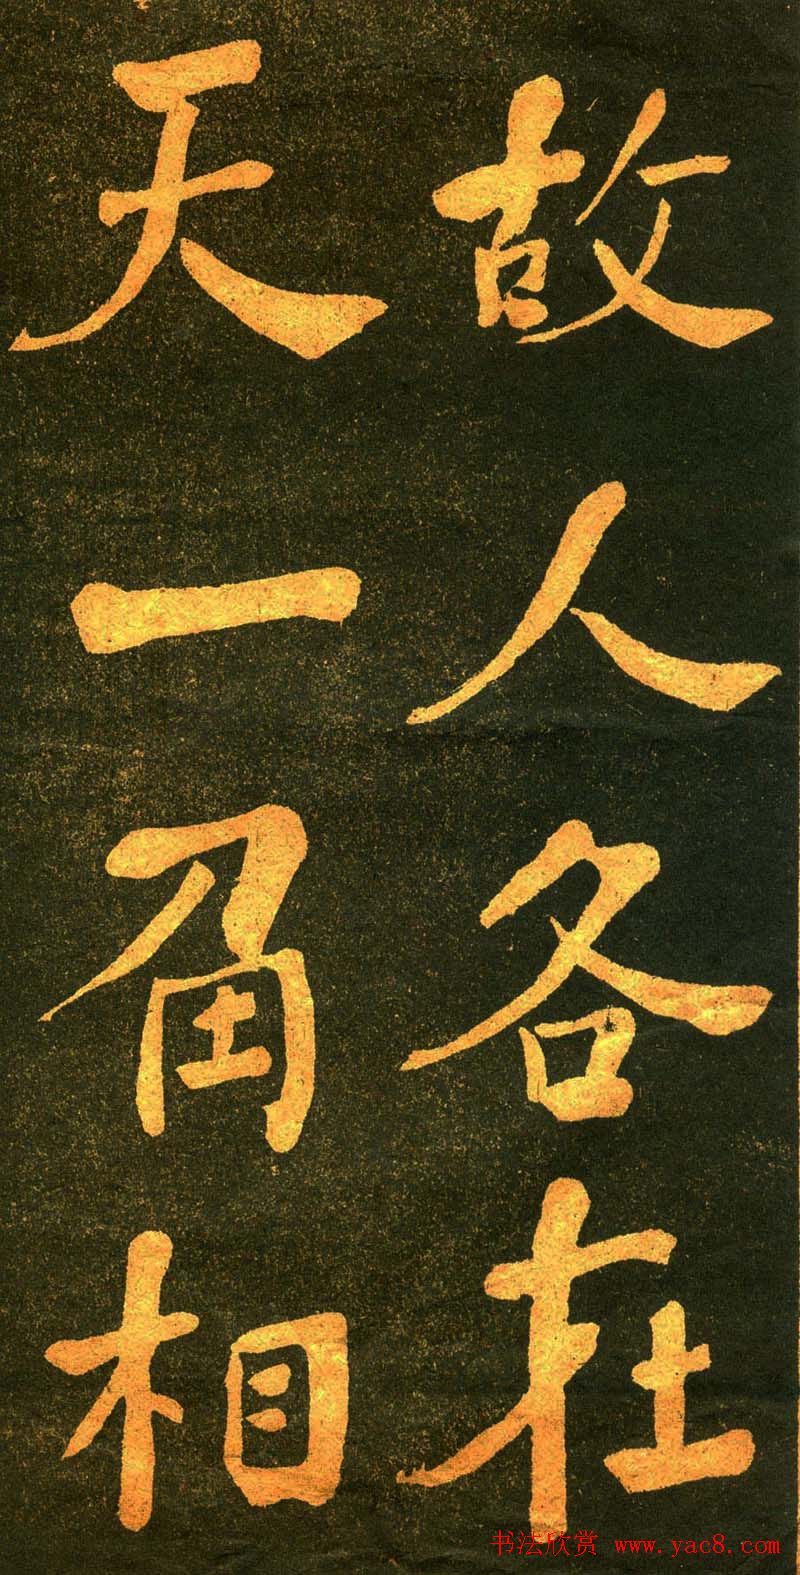 故人各在
天一角相
书法欣赏 www.yac8.com